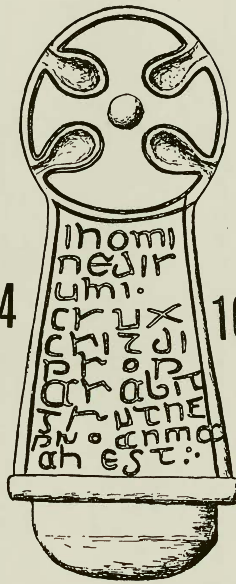 inomi
nedis
umi·
crux
crizdi
prop
arabit
grutne
pro·anma
ahest:·
4